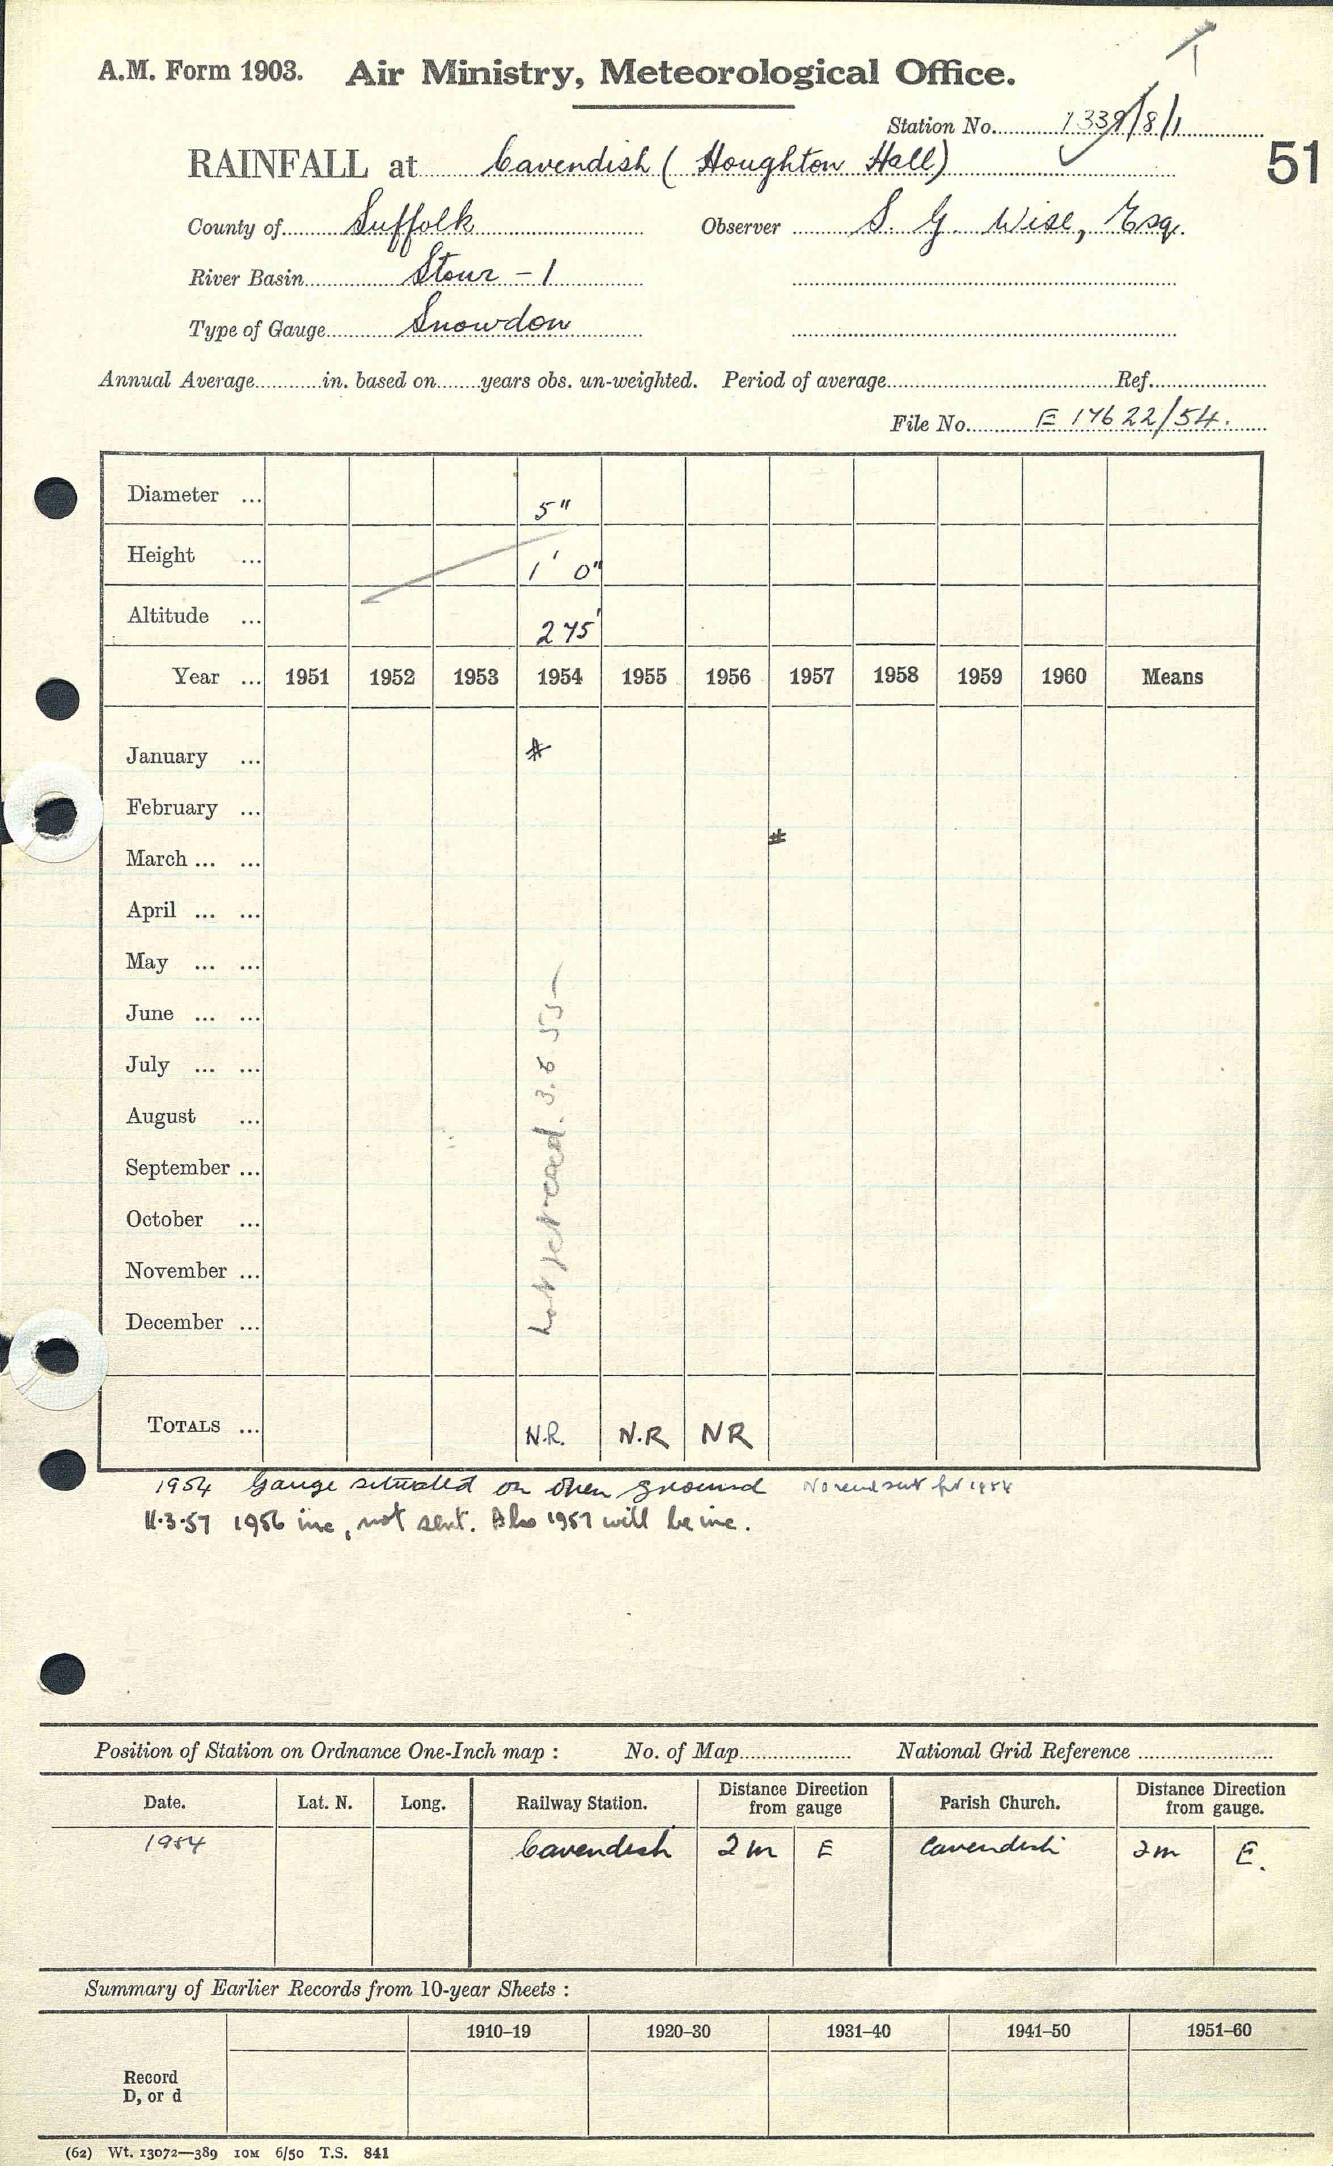 A.M. Form 1903. Air Ministry, Meteorological Office.
Station No. 1339/8/1
RAINFALL at Cavendish (Houghton Hall)
51
County of Suffolk Observer S. G. Wise, Esq.
River Basin Stour - 1
Type of Gauge Snowdon
Annual Average in. based on years obs. un-weighted. Period of average Ref.
File No. E 17622/54.
Diameter ... 5"
Height ... 1' 0"
Altitude ... 275'
Year ... 1951 1952 1953 1954 1955 1956 1957 1958 1959 1960 Means
January ... *
February ...
#
March ... ...
April ... ...
May ... ...
June ... ...
July ... ...
August ...
September ...
October ...
November ...
December ...
Not yet read. 3.6.55
TOTALS ... N.R. N.R NR
1954 Gauge situated on open ground No record sent for 1954
11.3.57 1956 inc, not sent. Also 1957 will be inc.
Position of Station on Ordnance One-Inch map : No. of Map National Grid Reference
Date. Lat. N. Long. Railway Station. Distance Direction from gauge Parish Church. Distance Direction from gauge.
1954 Cavendish 2 m E Cavendish 2m E.
Summary of Earlier Records from 10-year Sheets :
1910–19 1920–30 1931–40 1941–50 1951–60
Record
D, or d
(62) Wt. 13072—389 10M 6/50 T.S. 841